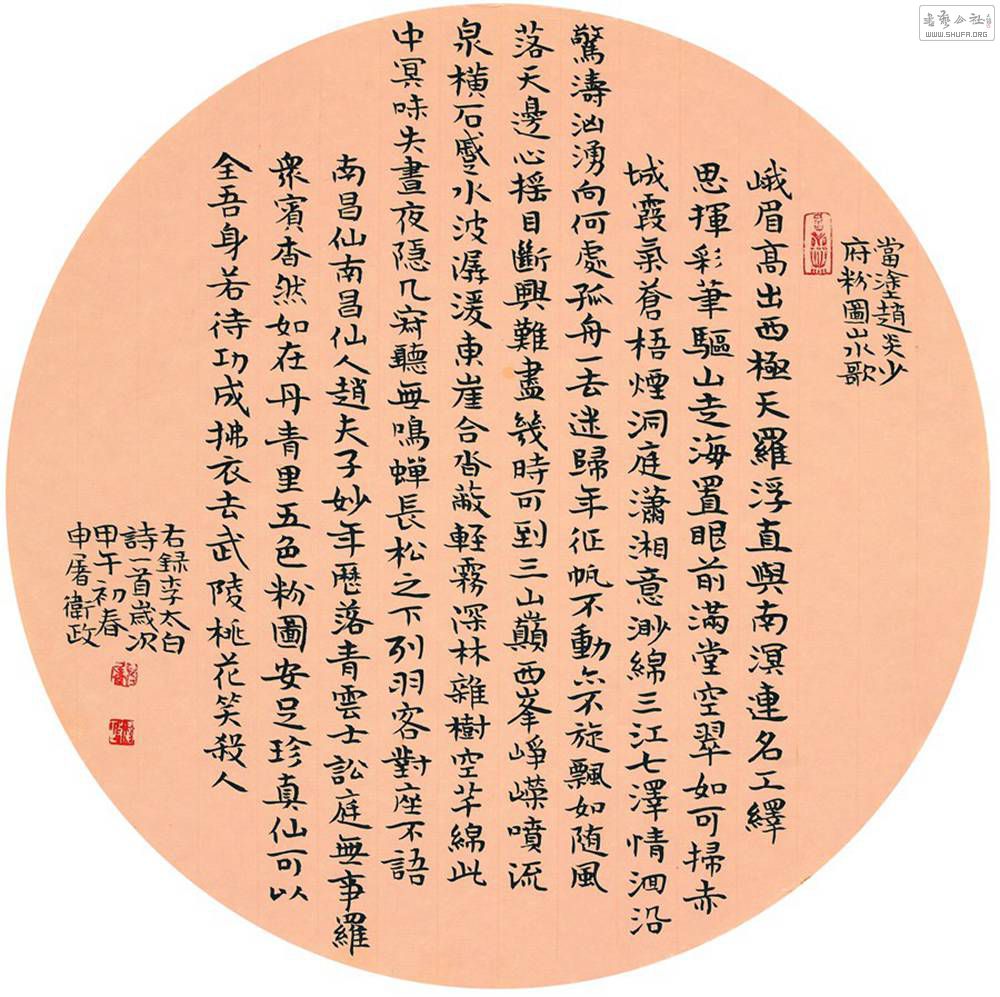 當塗趙炎少
府粉圖山水歌
峨眉高出西極天羅浮直與南溟連名工繹
思揮彩筆驅山走海置眼前滿堂空翠如可掃赤
城霞氣蒼梧煙洞庭瀟湘意渺綿三江七澤情洄沿
驚濤洶湧向何處孤舟一去迷歸年征帆不動亦不旋飄如随風
落天邊心摇目斷興難盡幾時可到三山巔西峯崢嶸噴流
泉橫石蹙水波潺湲東崖合沓蔽輕霧深林雜樹空芊綿此
中冥昧失晝夜隱几寂聽無鳴蟬長松之下列羽客對座不語
南昌仙南昌仙人趙夫子妙年歷落青雲士訟庭無事羅
眾賓杳然如在丹青里五色粉圖安足珍真仙可以
全吾身若待功成拂衣去武陵桃花笑殺人
右録李太白
詩一首歲次
甲午初春
申屠衛政
WWW.SHUFA.ORG